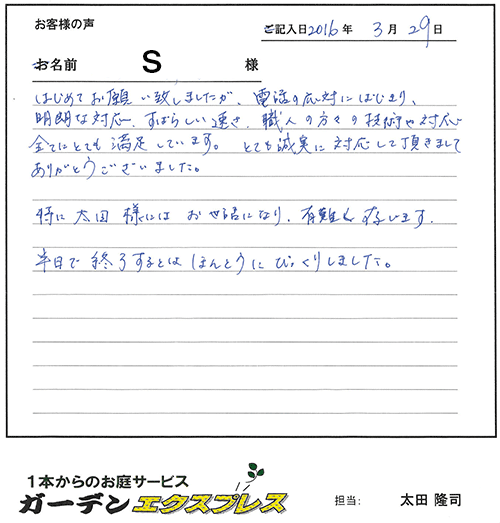 お客様の声
ご記入日2016年 3月29日
お名前 S 様
はじめてお願い致しましたが、電話の応対にはじまり、
明朗な対応、すばらしい速さ、職人の方々の技術や対応
全てにとても満足しています。とても誠実に対応して頂きまして
ありがとうございました。
特に太田様にはお世話になり、有難く存じます。
半日で終了するとはほんとうにびっくりしました。
1本からのお庭サービス
ガーデンエクスプレス
担当: 太田 隆司